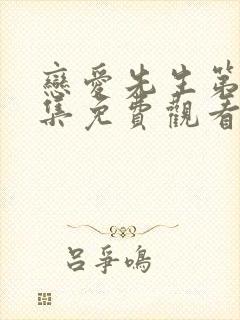 戀愛先生第
集免費觀看
呂爭鳴